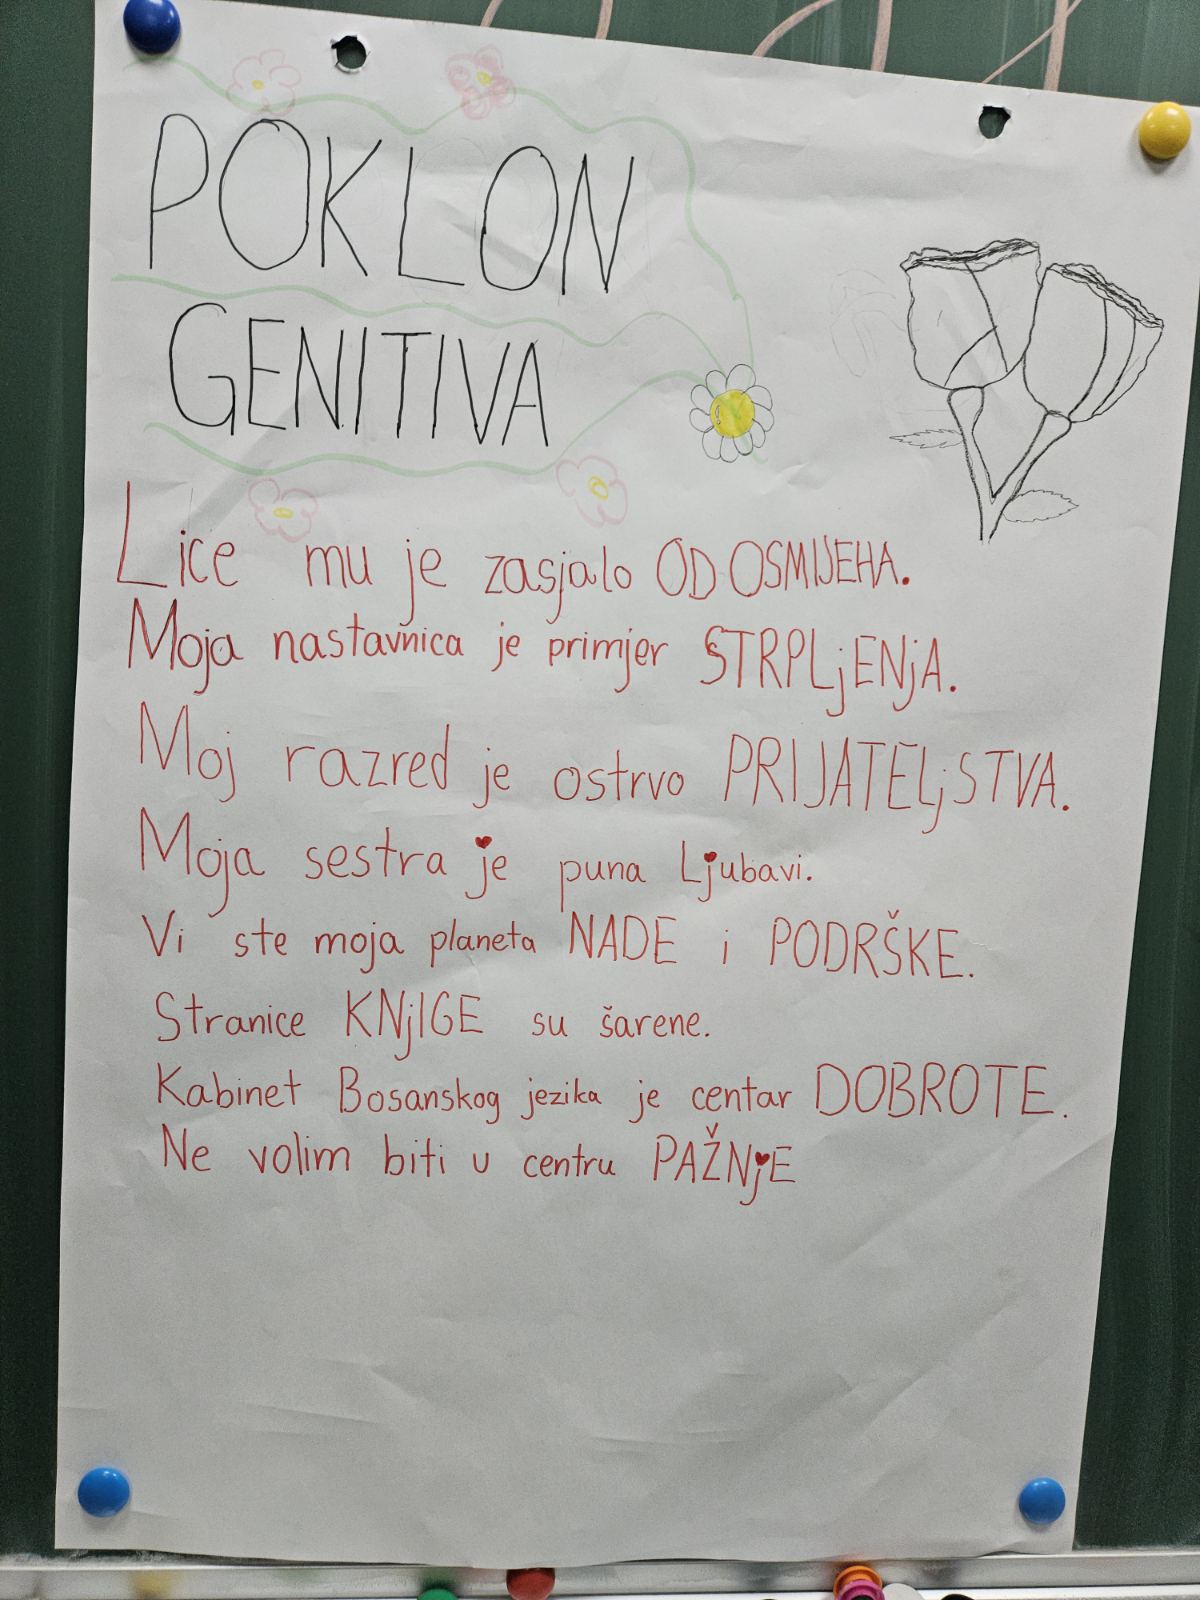 POKLON
GENITIVA
Lice mu je zasjalo OD OSMIJEHA.
Moja nastavnica je primjer STRPLjENjA.
Moj razred je ostrvo PRIJATELjSTVA.
Moja sestra je puna Ljubavi.
Vi ste moja planeta NADE i PODRŠKE.
Stranice KNjIGE su šarene.
Kabinet Bosanskog jezika je centar DOBROTE.
Ne volim biti u centru PAŽNjE